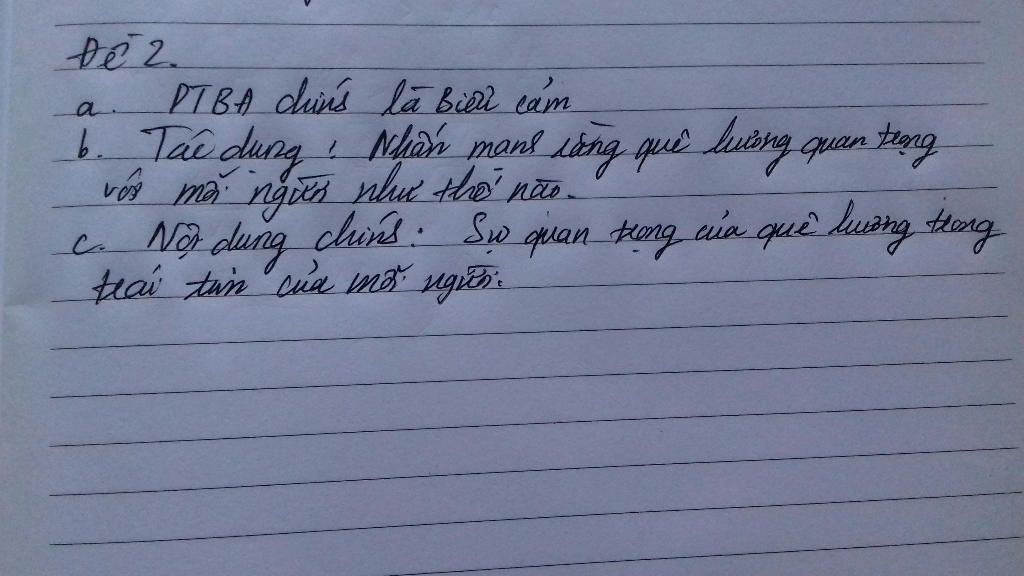 Đề 2.
a. PTBĐ chính là Biểu cảm
b. Tác dụng : Nhấn mạnh rằng quê hương quan trọng
với mỗi người như thế nào.
c. Nội dung chính : Sự quan trọng của quê hương trong
trái tim của mỗi người.